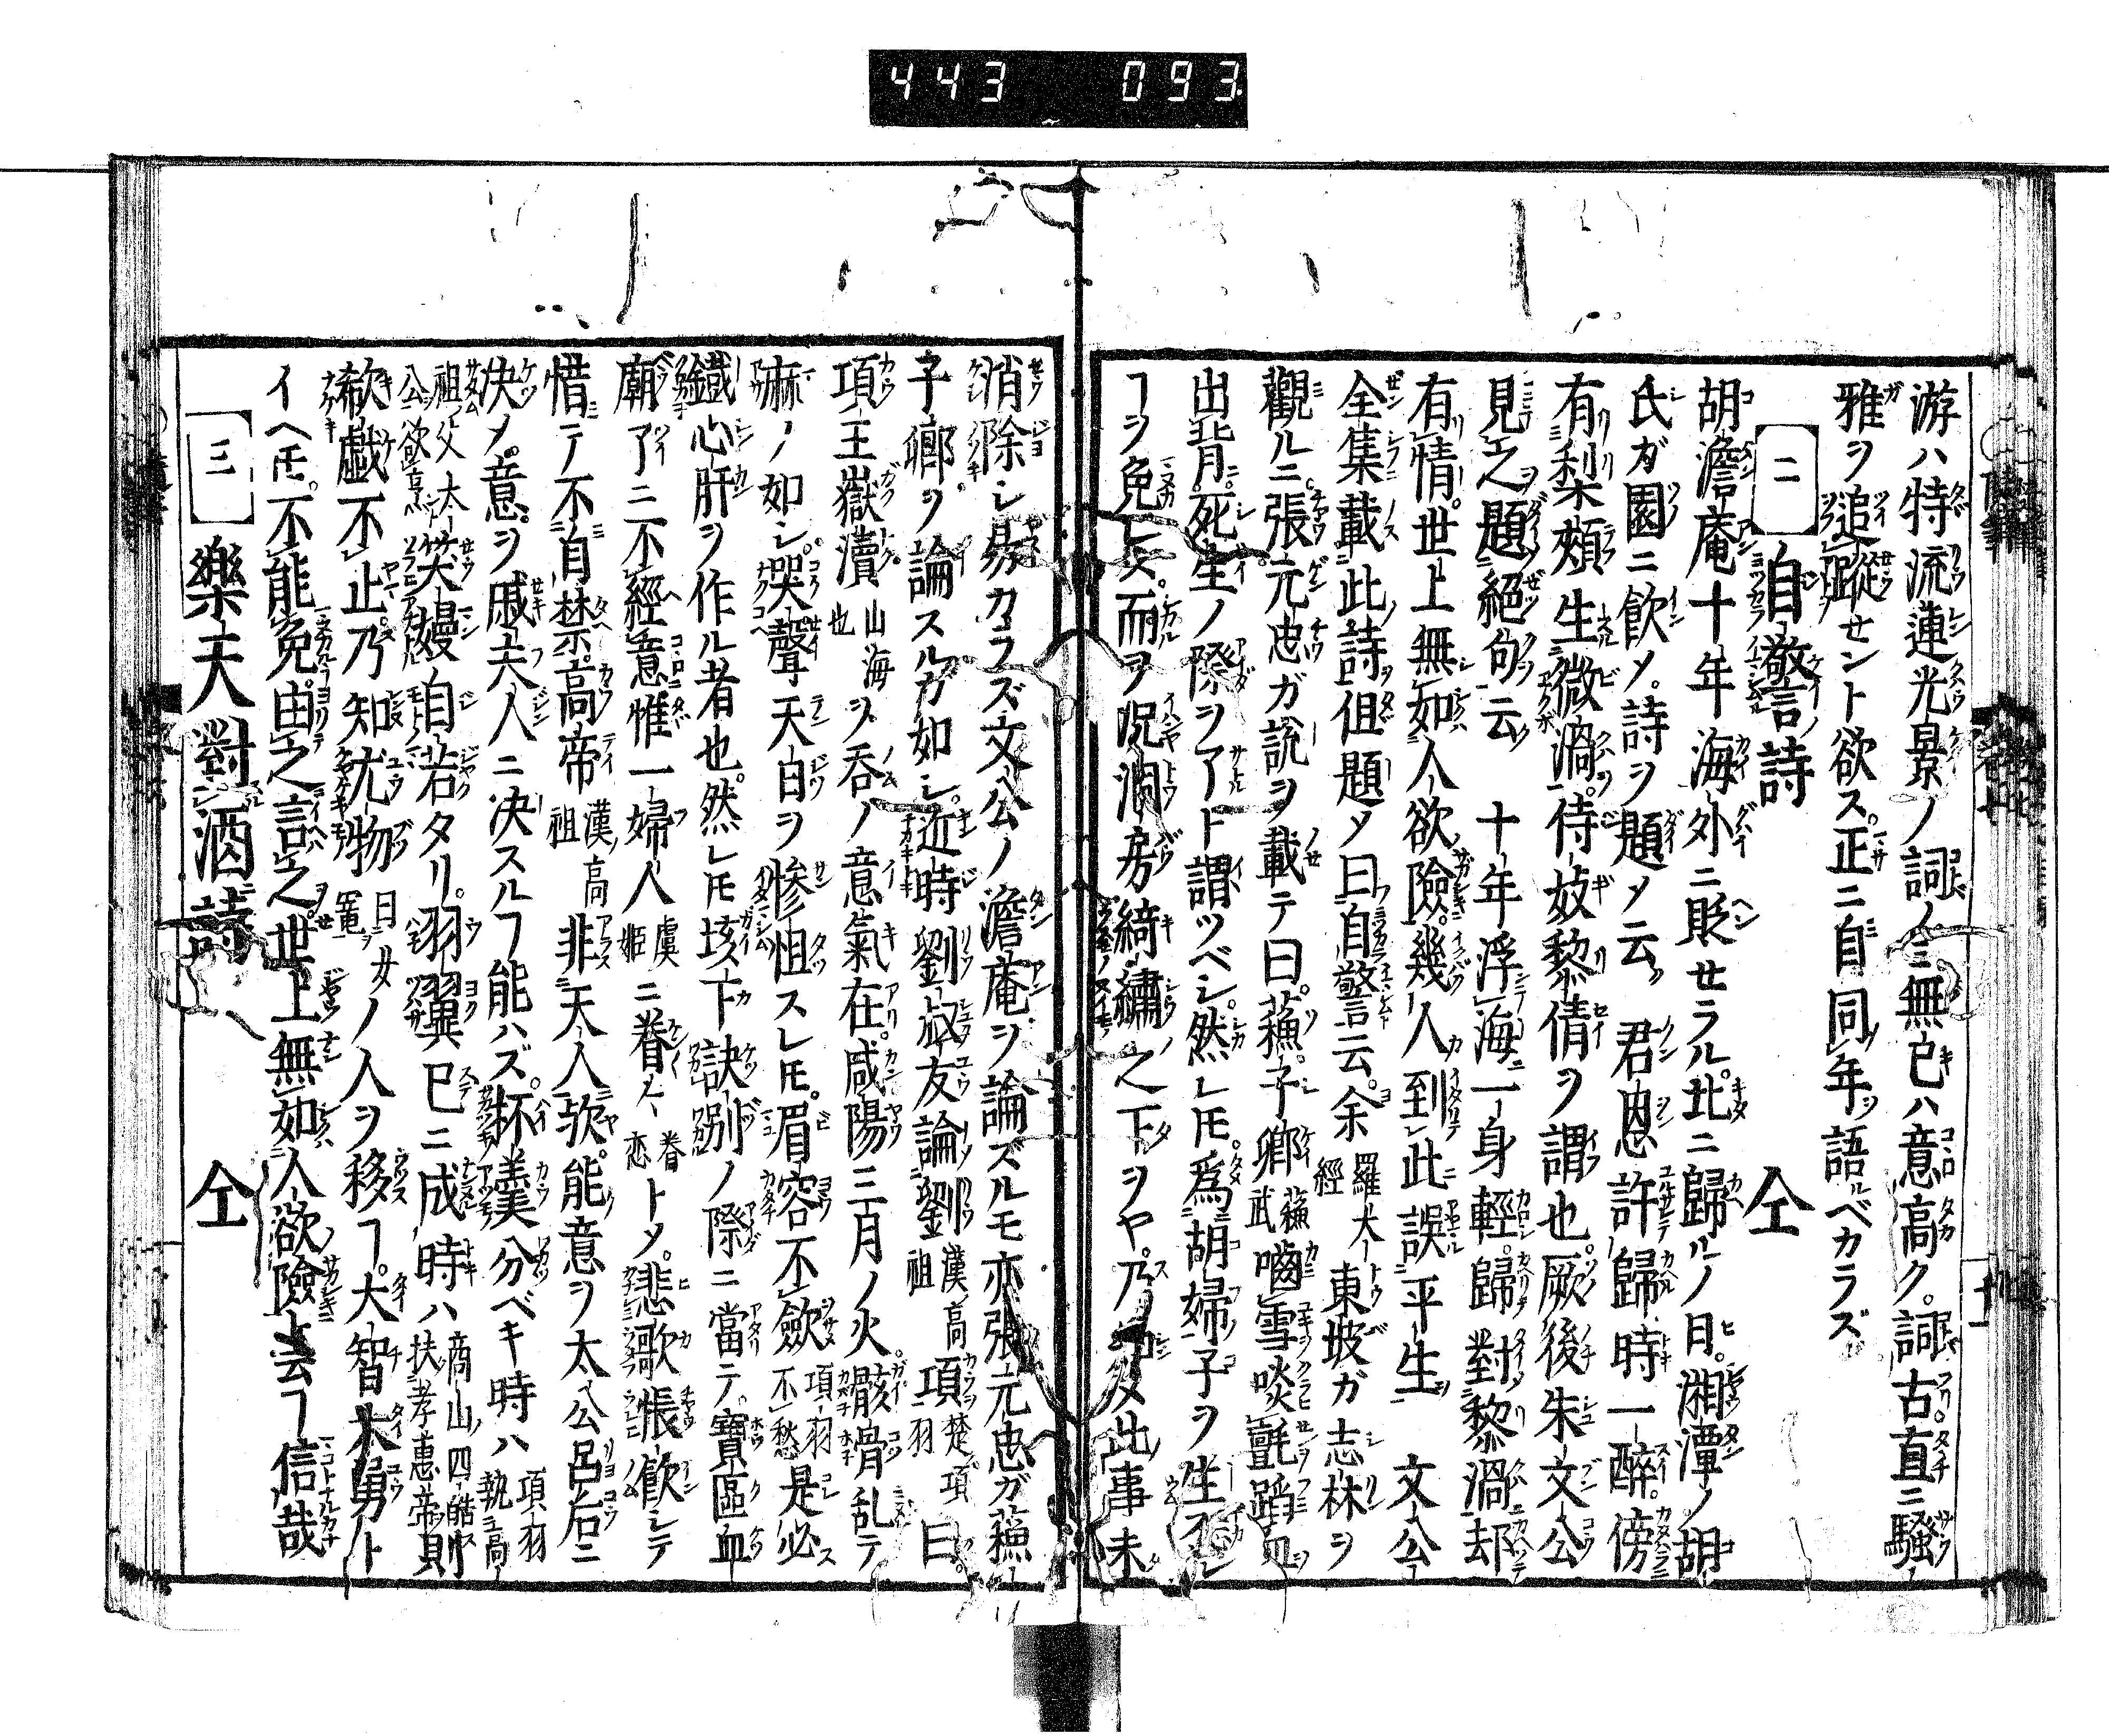 443 093
游ハ特流連光景ノ詞ノミ無已ハ意高ク詞古直ニ騷
雅ヲ追蹤セント欲ス正ニ自同年語ベカラズ
二 自警詩 仝
胡澹庵十年海外ニ貶セラル北ニ歸ルノ日湘潭ノ胡
氏ガ園ニ飲〆詩ヲ題〆云 君恩許歸時一醉傍
有梨頰生微渦侍妓黎倩ヲ謂也厥後朱文公
見之題絕句云 十年浮海一身輕歸對黎渦却
有情世上無如人欲險幾人到此誤平生 文公
全集載此詩但題〆曰自警云余羅大經東坡ガ志林ヲ
觀ルニ張元忠ガ說ヲ載テ曰蘓子卿蘓武嚙雪啖氈蹈血
出背死生ノ際ヲアト謂ツベシ然レ𪜈爲胡婦子ヲ生
ヿヲ免レズ而ヲ況洞房綺繡之下ヲヤ乃知〆此事未
消除シ易カラズ文公ノ澹庵ヲ論ズルモ亦張元忠ガ蘓
子卿ヲ論スルガ如シ近時劉叔友論劉漢高祖項楚項羽曰
項王嶽瀆山海也ヲ吞ノ意氣在咸陽三月ノ火骸骨乱テ
麻ノ如シ哭聲天白ヲ慘怛スレ𪜈眉容不歛項羽不愁是必
鐵心肝ヲ作ル者也然レ𪜈垓下訣別ノ際ニ當テ寶區血
廟了ニ不經意惟一婦人虞姬ニ眷々眷恋ト〆悲歌悵飲シテ
惜テ不自禁高帝漢高祖非天人歟能意ヲ太公呂后ニ
決〆意ヲ戚夫人ニ决スルヿ能ハズ杯羹分ベキ時ハ項羽執高
祖父太公欲烹笑嫚自若タリ羽翼已ニ成時ハ商山四皓扶孝惠帝則
欷戯不止乃知尤物ノ人ヲ移ヿ大智大勇ト
イヘ𪜈不能免由之言之世上無如人欲險ト云ヿ信哉
三 樂天對酒詩 仝